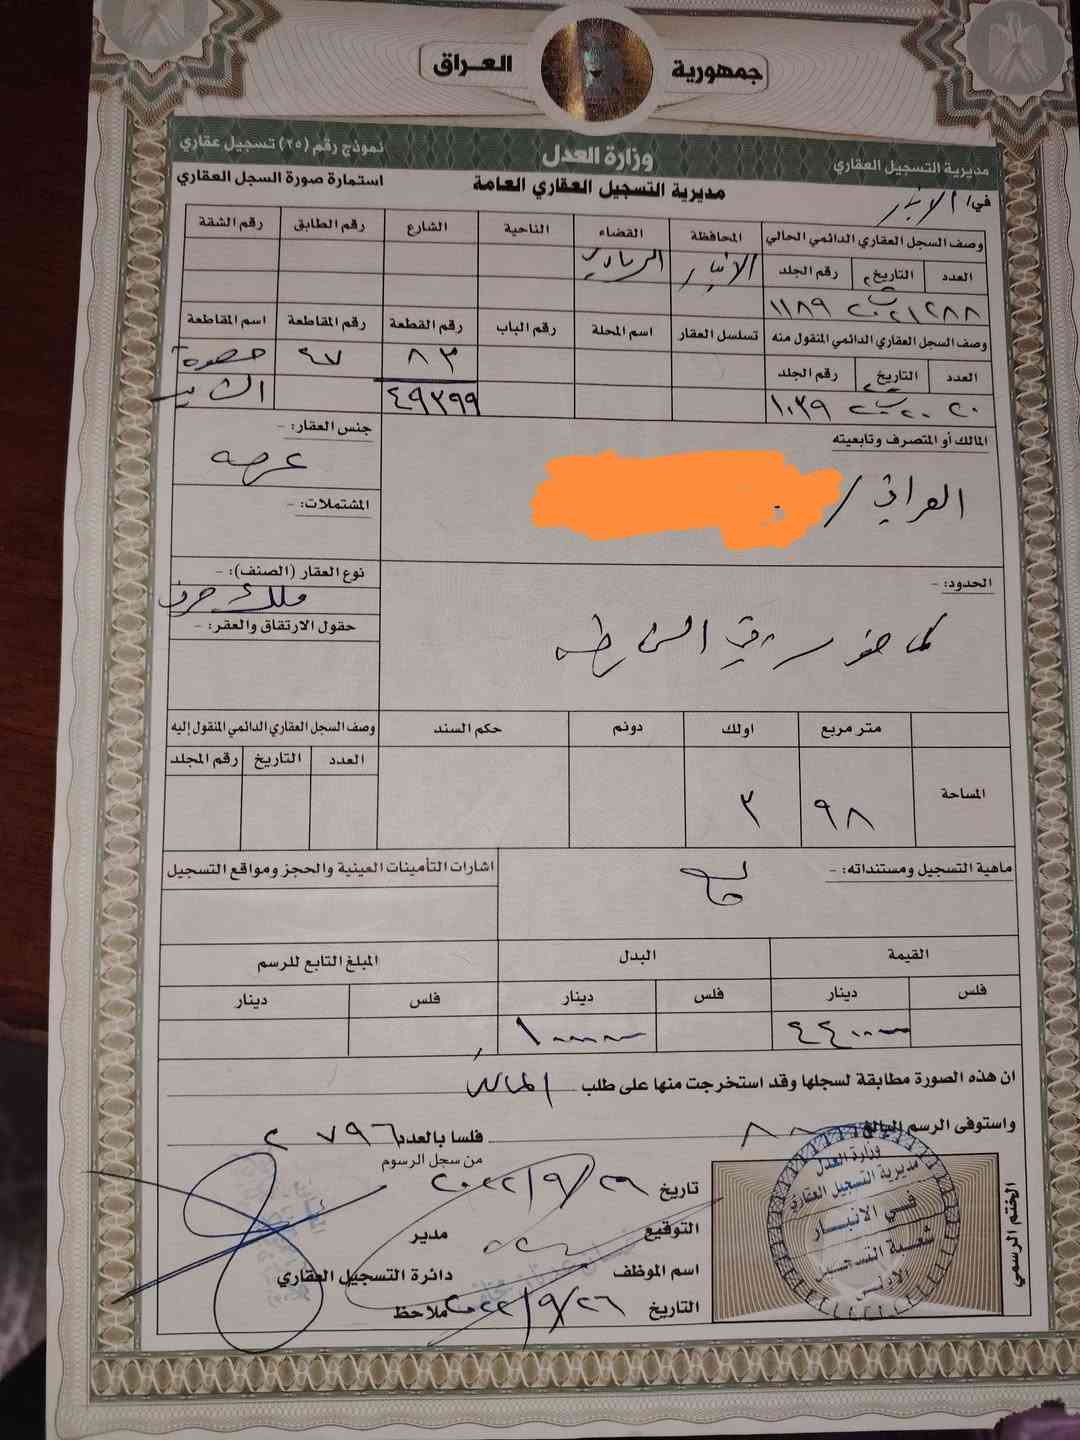 جمهورية العراق
وزارة العدل
مديرية التسجيل العقاري
نموذج رقم (٢٥) تسجيل عقاري
مديرية التسجيل العقاري العامة
استمارة صورة السجل العقاري
في/ الانبار
وصف السجل العقاري الدائمي الحالي
المحافظة القضاء الناحية الشارع رقم الطابق رقم الشقة
العدد التاريخ رقم الجلد
الانبار الرمادي
٢٨٨ ٢٠٢١ ١١٨٩
وصف السجل العقاري الدائمي المنقول منه
تسلسل العقار اسم المحلة رقم الباب رقم القطعة رقم المقاطعة اسم المقاطعة
العدد التاريخ رقم الجلد
٨٣ ٤٧
٤٩٣٩٩
٢٠ ٢٠٢٠ ١٠٣٩
المالك أو المتصرف وتابعيته
العراقي /
جنس العقار: -
عرصه
المشتملات: -
نوع العقار (الصنف): -
ملك صرف
حقول الارتقاق والعقر: -
الحدود: -
الخارطه
متر مربع اولك دونم حكم السند
وصف السجل العقاري الدائمي المنقول إليه
العدد التاريخ رقم المجلد
المساحة
٩٨ ٣
ماهية التسجيل ومستنداته: -
اشارات التأمينات العينية والحجز ومواقع التسجيل
القيمة البدل المبلغ التابع للرسم
فلس دينار فلس دينار فلس دينار
ان هذه الصورة مطابقة لسجلها وقد استخرجت منها على طلب المالك
واستوفى الرسم البالغ فلسا بالعدد
من سجل الرسوم
تاريخ ٢٩/٩/٢٠٢٢
التوقيع
مدير
اسم الموظف
دائرة التسجيل العقاري
التاريخ ٢٦/٩/٢٠٢٢
ملاحظ
الختم الرسمي
وزارة العدل
مديرية التسجيل العقاري
في الانبار
شعبة التسجيل